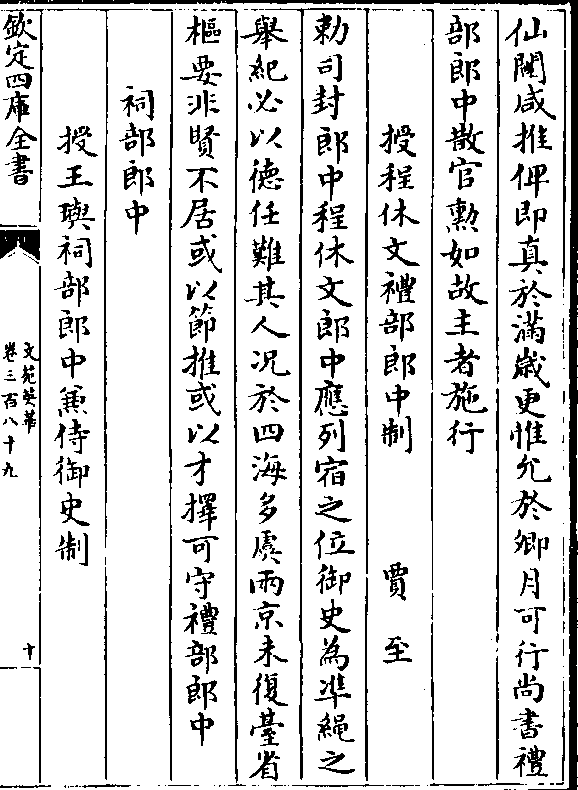 仙闈咸推俾即真於滿嵗更惟允於卿月可行尚書禮
部郎中散官勲如故主者施行
授程休文禮部郎中制　賈至
勅司封郎中程休文郎中應列宿之位御史為準繩之
舉紀必以德任難其人况於四海多虞兩京未復臺省
樞要非賢不居或以節推或以才擇可守禮部郎中
祠部郎中
授王璵祠部郎中兼侍御史制
欽定四庫全書
文苑英華
卷三百八十九
十